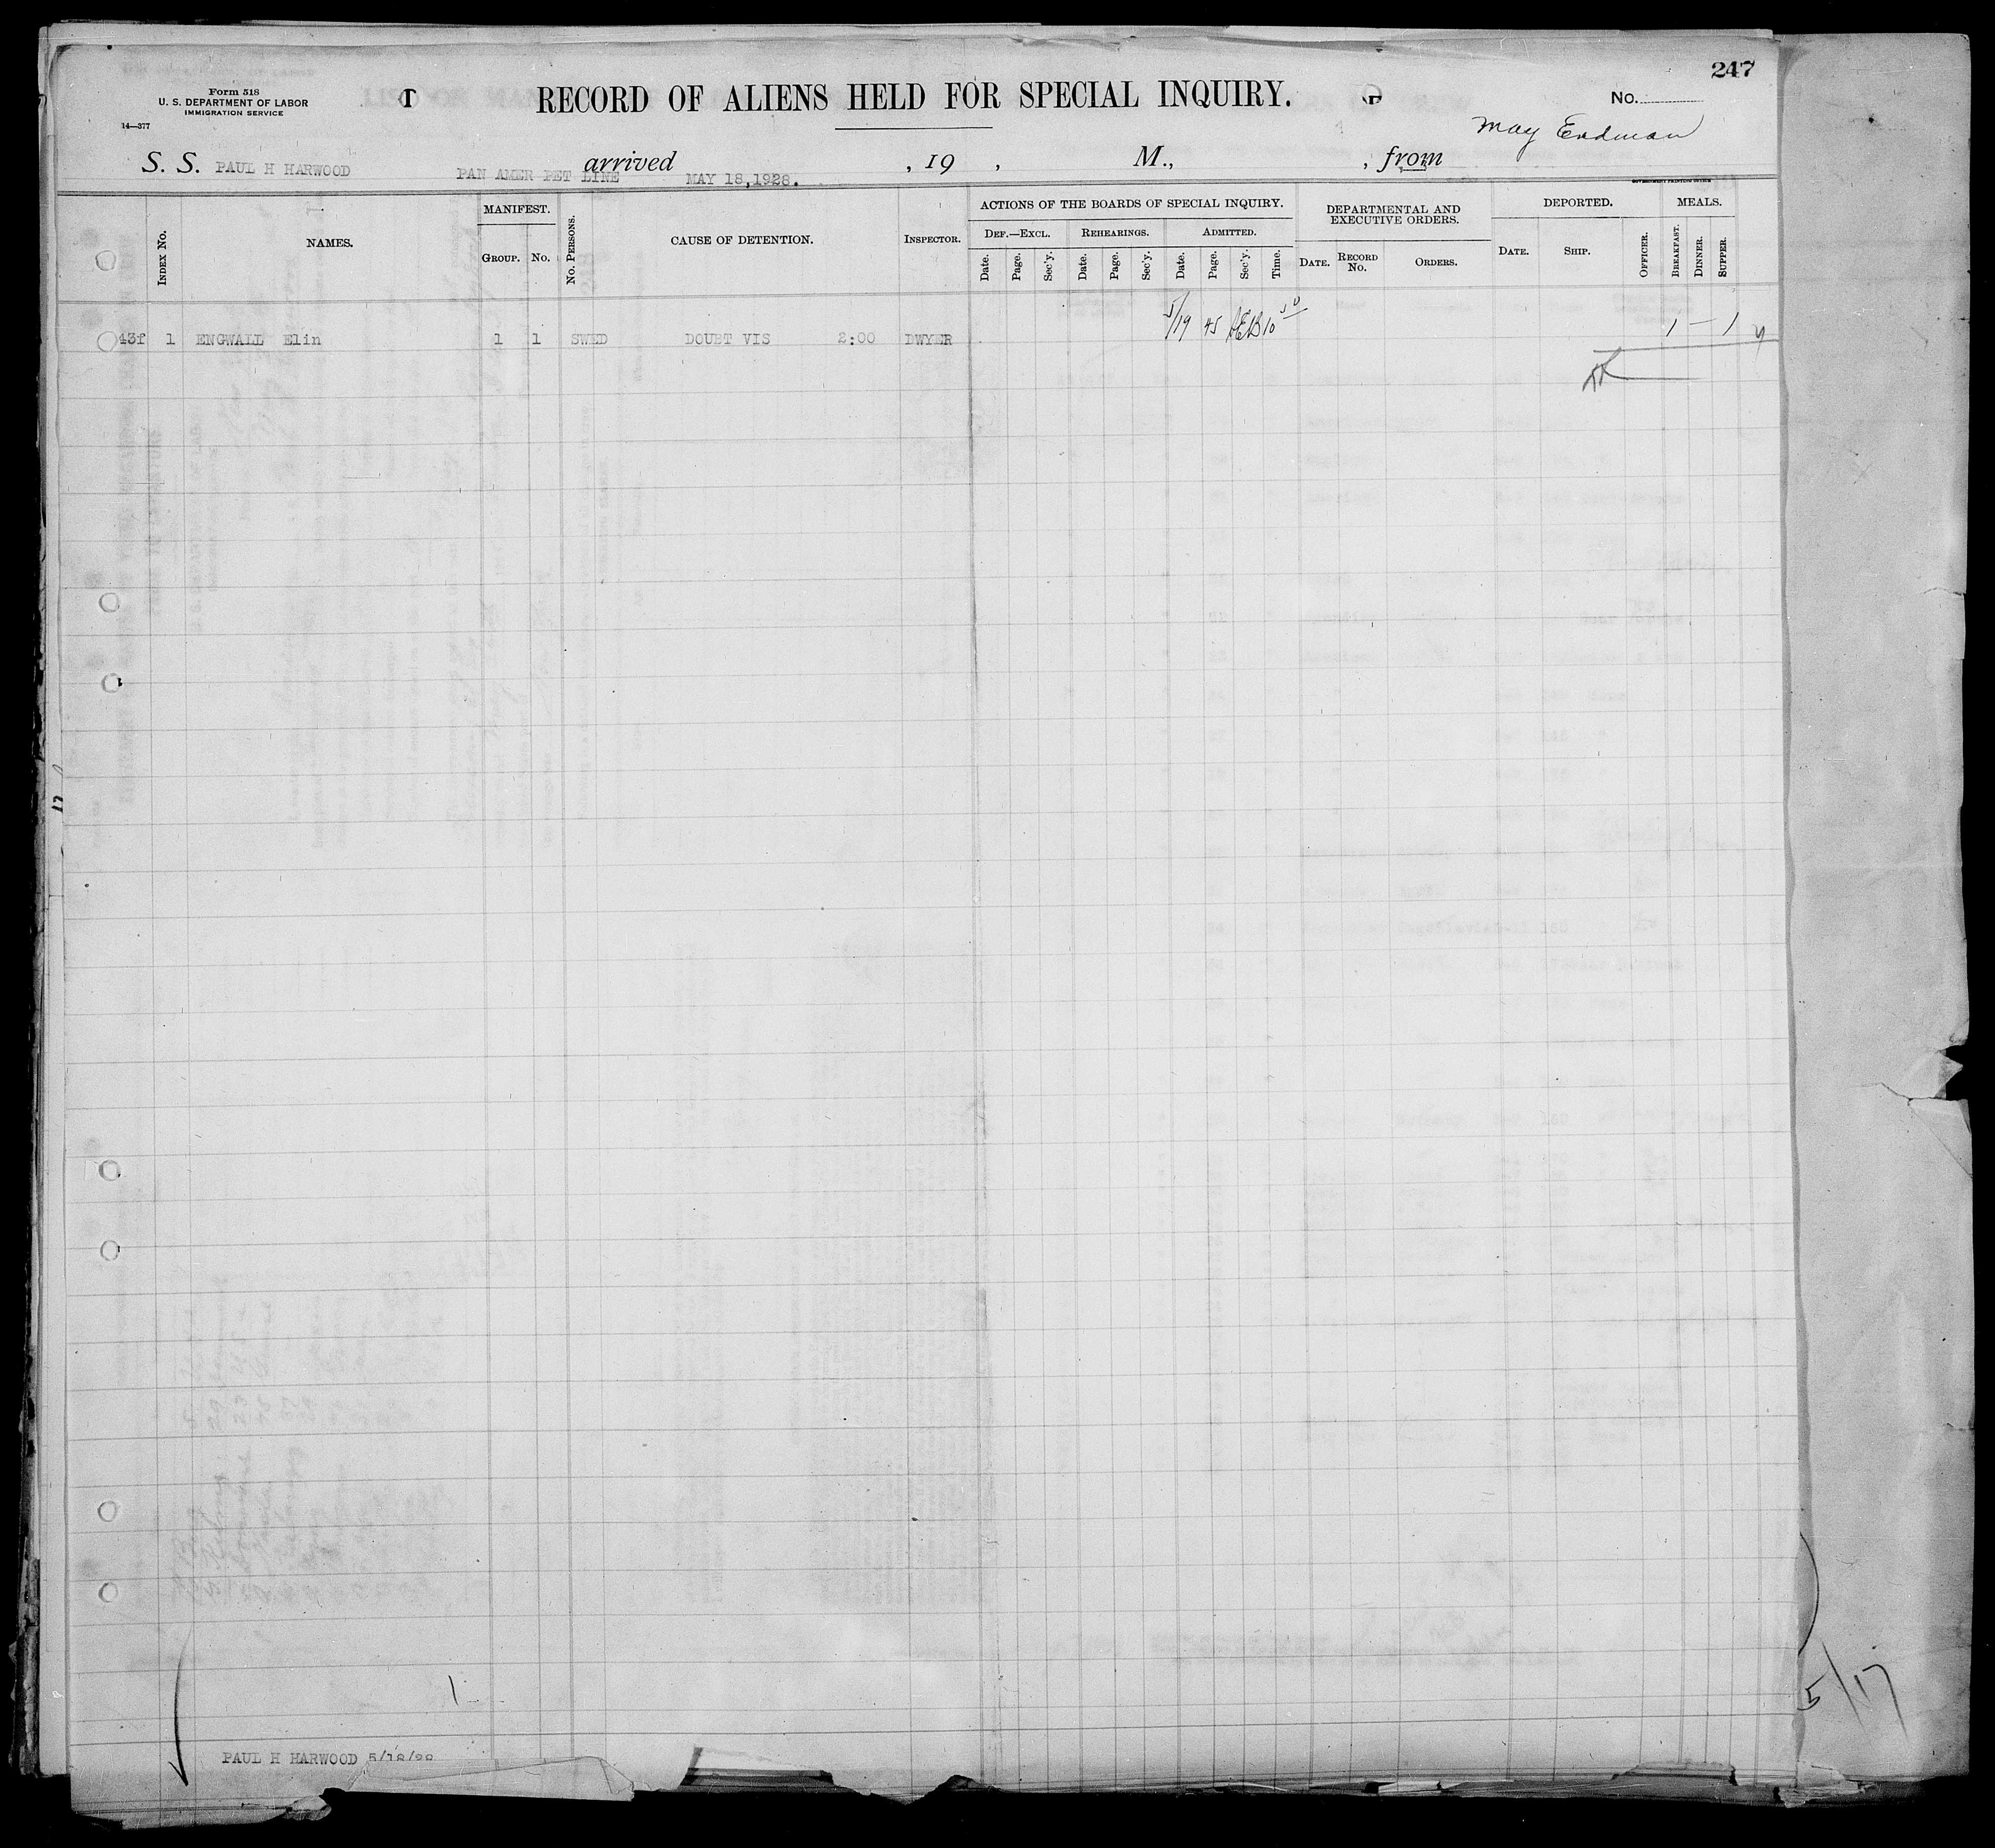 247
Form 518
U. S. DEPARTMENT OF LABOR
IMMIGRATION SERVICE
14—377
RECORD OF ALIENS HELD FOR SPECIAL INQUIRY.
No.
May Erdman
S. S. PAUL H HARWOOD PAN AMER PET LINE arrived MAY 18,1928. , 19 , M., , from
GOVERNMENT PRINTING OFFICE
INDEX No. NAMES. MANIFEST. GROUP. No. No. PERSONS. CAUSE OF DETENTION. INSPECTOR.
ACTIONS OF THE BOARDS OF SPECIAL INQUIRY.
DEF.—EXCL. REHEARINGS. ADMITTED.
Date. Page. Sec'y. Date. Page. Sec'y. Date. Page. Sec'y. Time.
DEPARTMENTAL AND EXECUTIVE ORDERS.
DATE. RECORD No. ORDERS.
DEPORTED.
DATE. SHIP. OFFICER.
MEALS.
BREAKFAST. DINNER. SUPPER.
43f 1 ENGWALL Elin 1 1 SWED DOUBT VIS 2:00 DWYER 5/19 45 10 50 1 — 1
1
PAUL H HARWOOD 5/18/28
5/17